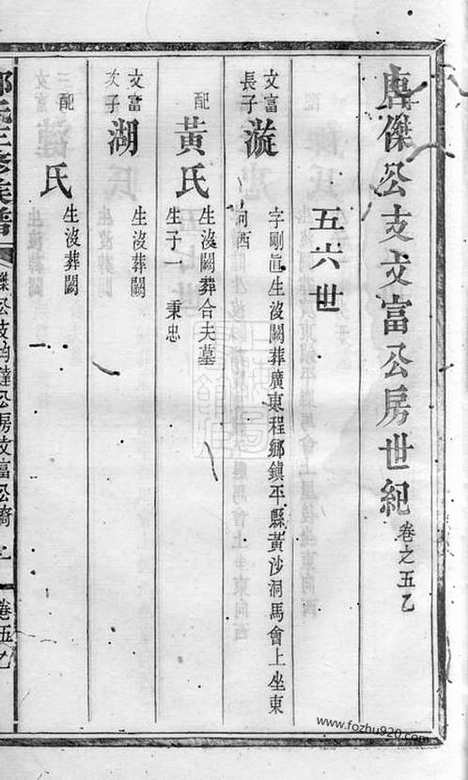 傑公支文富公房世紀 卷之五乙
五六世
文富長子 漩 字剛眞生沒闕葬廣東程鄉鎮平縣黃沙洞馬會上坐東向西
配 黃氏 生沒闕葬合夫墓
生子一 秉忠
文富次子 湖 生沒葬闕
配 氏 生沒葬闕
氏三修族譜
傑公支 公房文富公 卷五乙
www.fozhu920.com